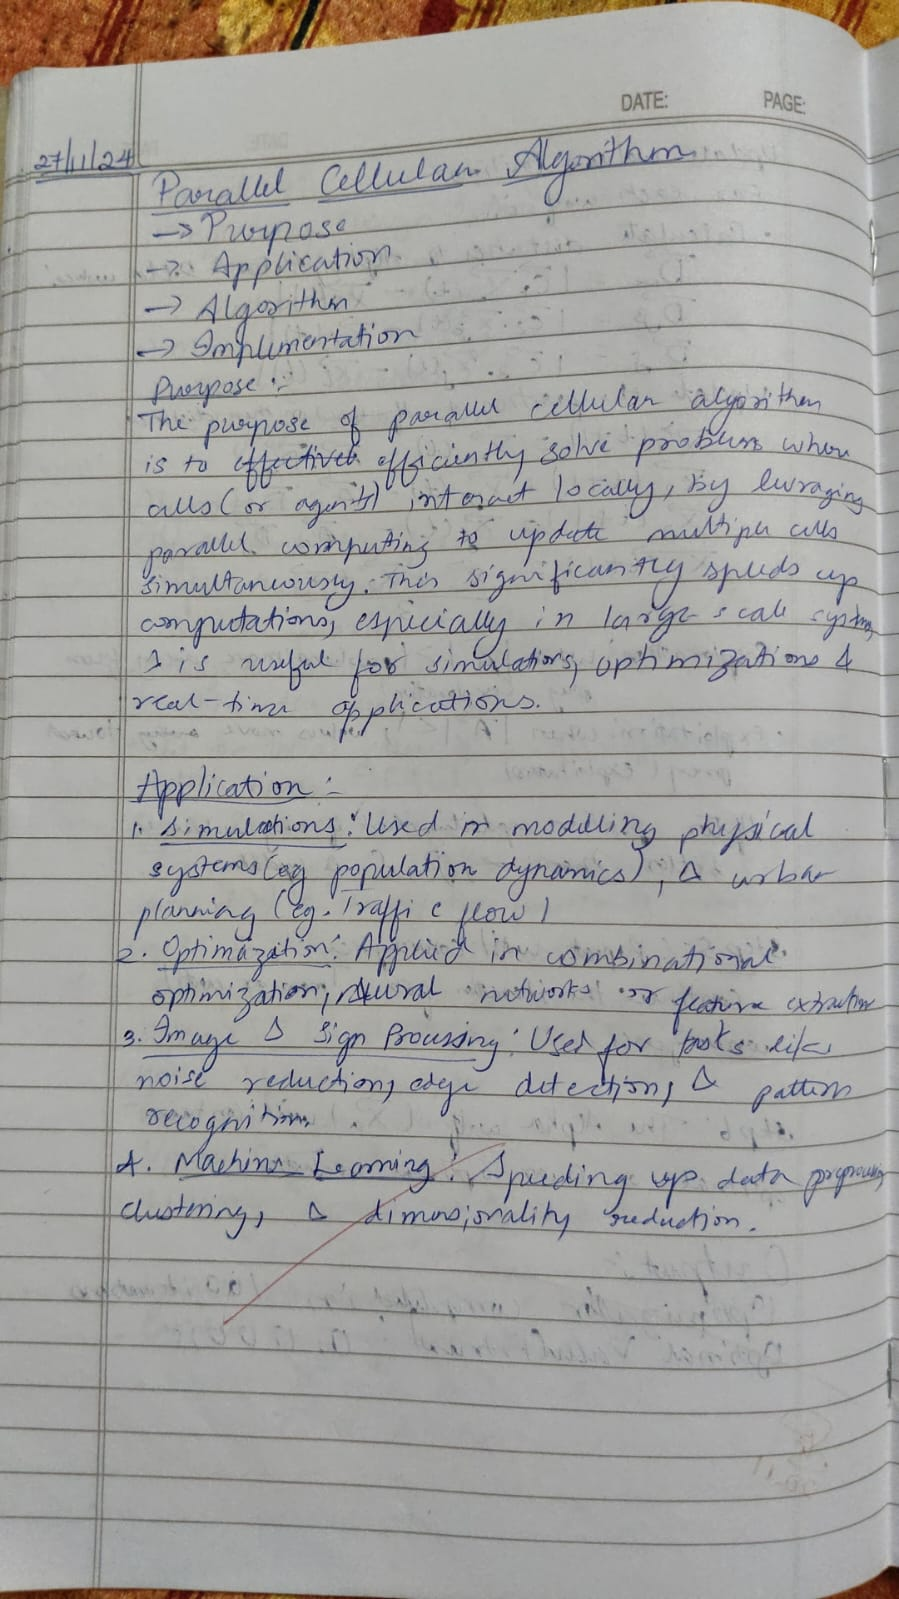 DATE: PAGE:
27/11/24
Parallel Cellular Algorithm
→ Purpose
→ Application
→ Algorithm
→ Implementation
Purpose :-
The purpose of parallel cellular algorithm
is to effectively efficiently solve problems where
cells (or agents) interact locally, by levraging
parallel computing to update multiple cells
simultaneously. This significantly speeds up
computations, especially in large-scale systems,
& is useful for simulations, optimizations &
real-time applications.
Application :-
1. Simulations: Used in modelling physical
systems (eg population dynamics), & urban
planning (eg. Traffic flow)
2. Optimazation: Applied in combinational
optimization, neural networks or feature extraction
3. Image & Sign Processing: Used for tasks like
noise reduction, edge detection, & pattern
recognition.
4. Machine Learning: Speeding up data preprocessing
clustering, & dimensionality reduction.